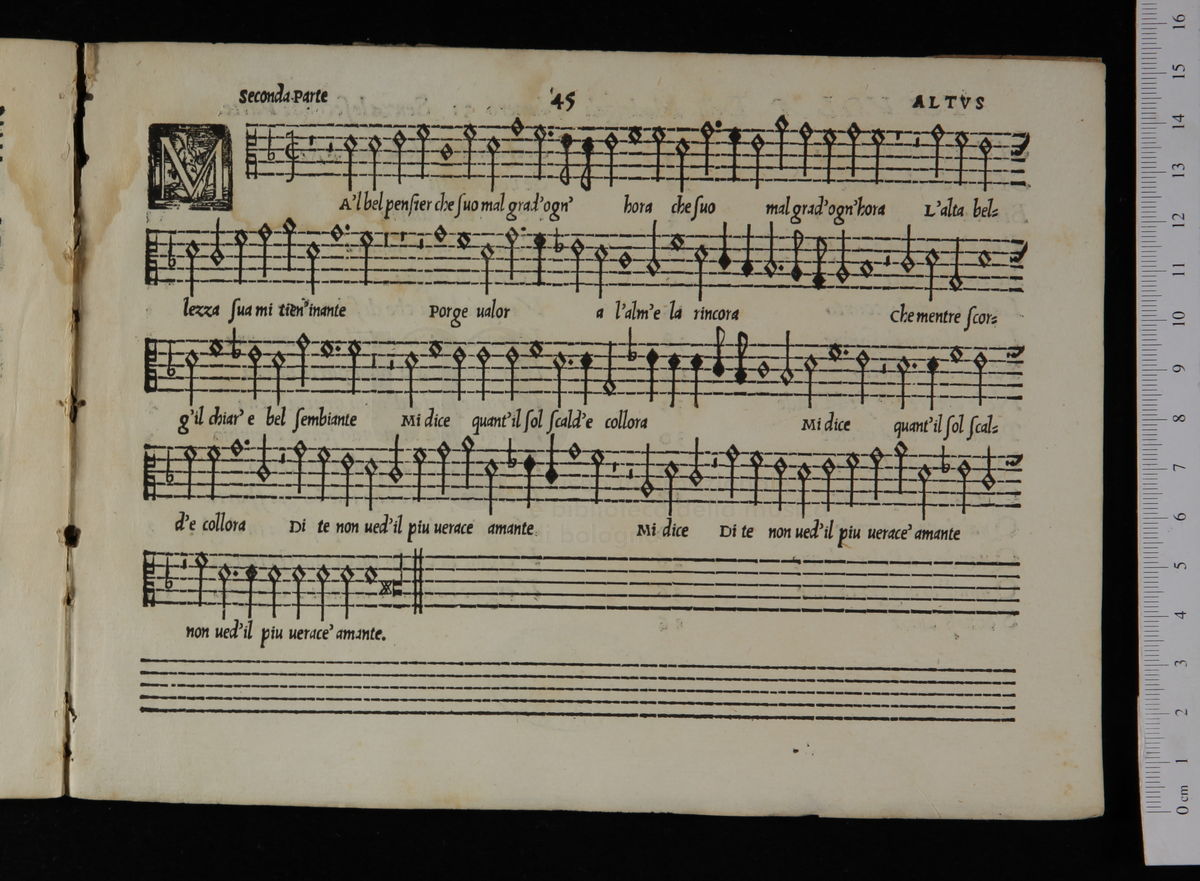 Seconda Parte 45 ALTVS
MA'l bel pensier che suo mal grad'ogn' hora che suo mal grad'ogn'hora L'alta bel=
lezza sua mi tien'inante Porge ualor a l'alm'e la rincora Che mentre scor=
g'il chiar' e bel sembiante Mi dice quant'il sol scald'e collora Mi dice quant'il sol scal=
d'e collora Di te non ued'il piu uerace amante Mi dice Di te non ued'il piu uerace' amante
e biblioteca della musica
di bologna
non ued'il piu uerace' amante.
16
15
14
13
12
11
10
9
8
7
6
5
4
3
2
1
0 cm